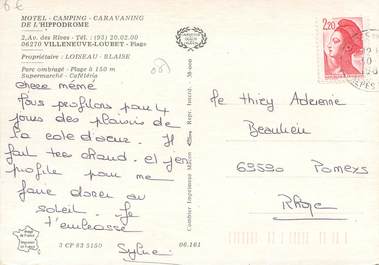 6€
MOTEL - CAMPING - CARAVANING
DE L'HIPPODROME
2,Av. des Rives - Tél. : (93) 20.02.00
06270 VILLENEUVE-LOUBET - Plage
Propriétaire : LOISEAU - BLAISE
Parc ombragé - Plage à 150 m
Supermarché - Cafétéria
Chere mémé
Nous profitons pour 4
jours des plaisirs de
la cote d'azur. Il
fait tres chaud. et j'en
profite pour me
faire dorer au
soleil. Je
t'embrasse
Sylvie
3 CP 83 5150
06.161
Combier Imprimeur Macon
2,20
Adrienne
Beaulieu
69590 Pomeys
Rhône